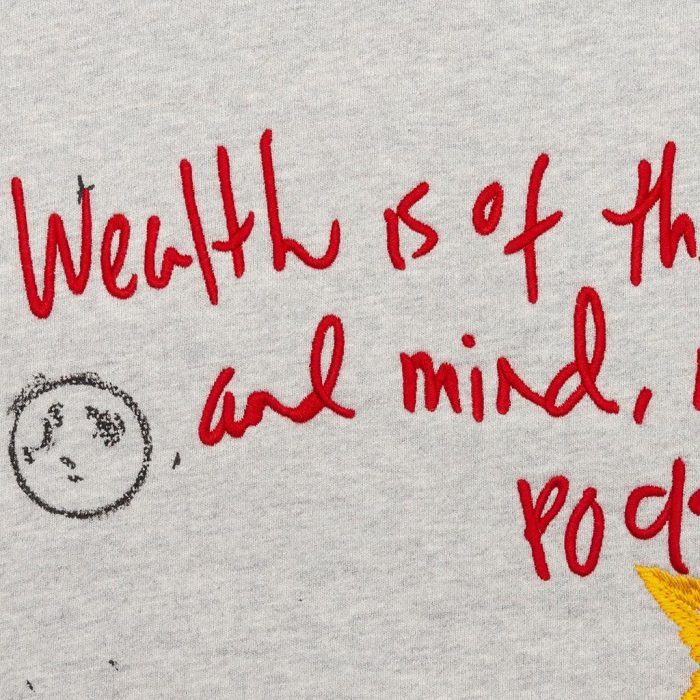 Wealth is of th
and mind,
poc